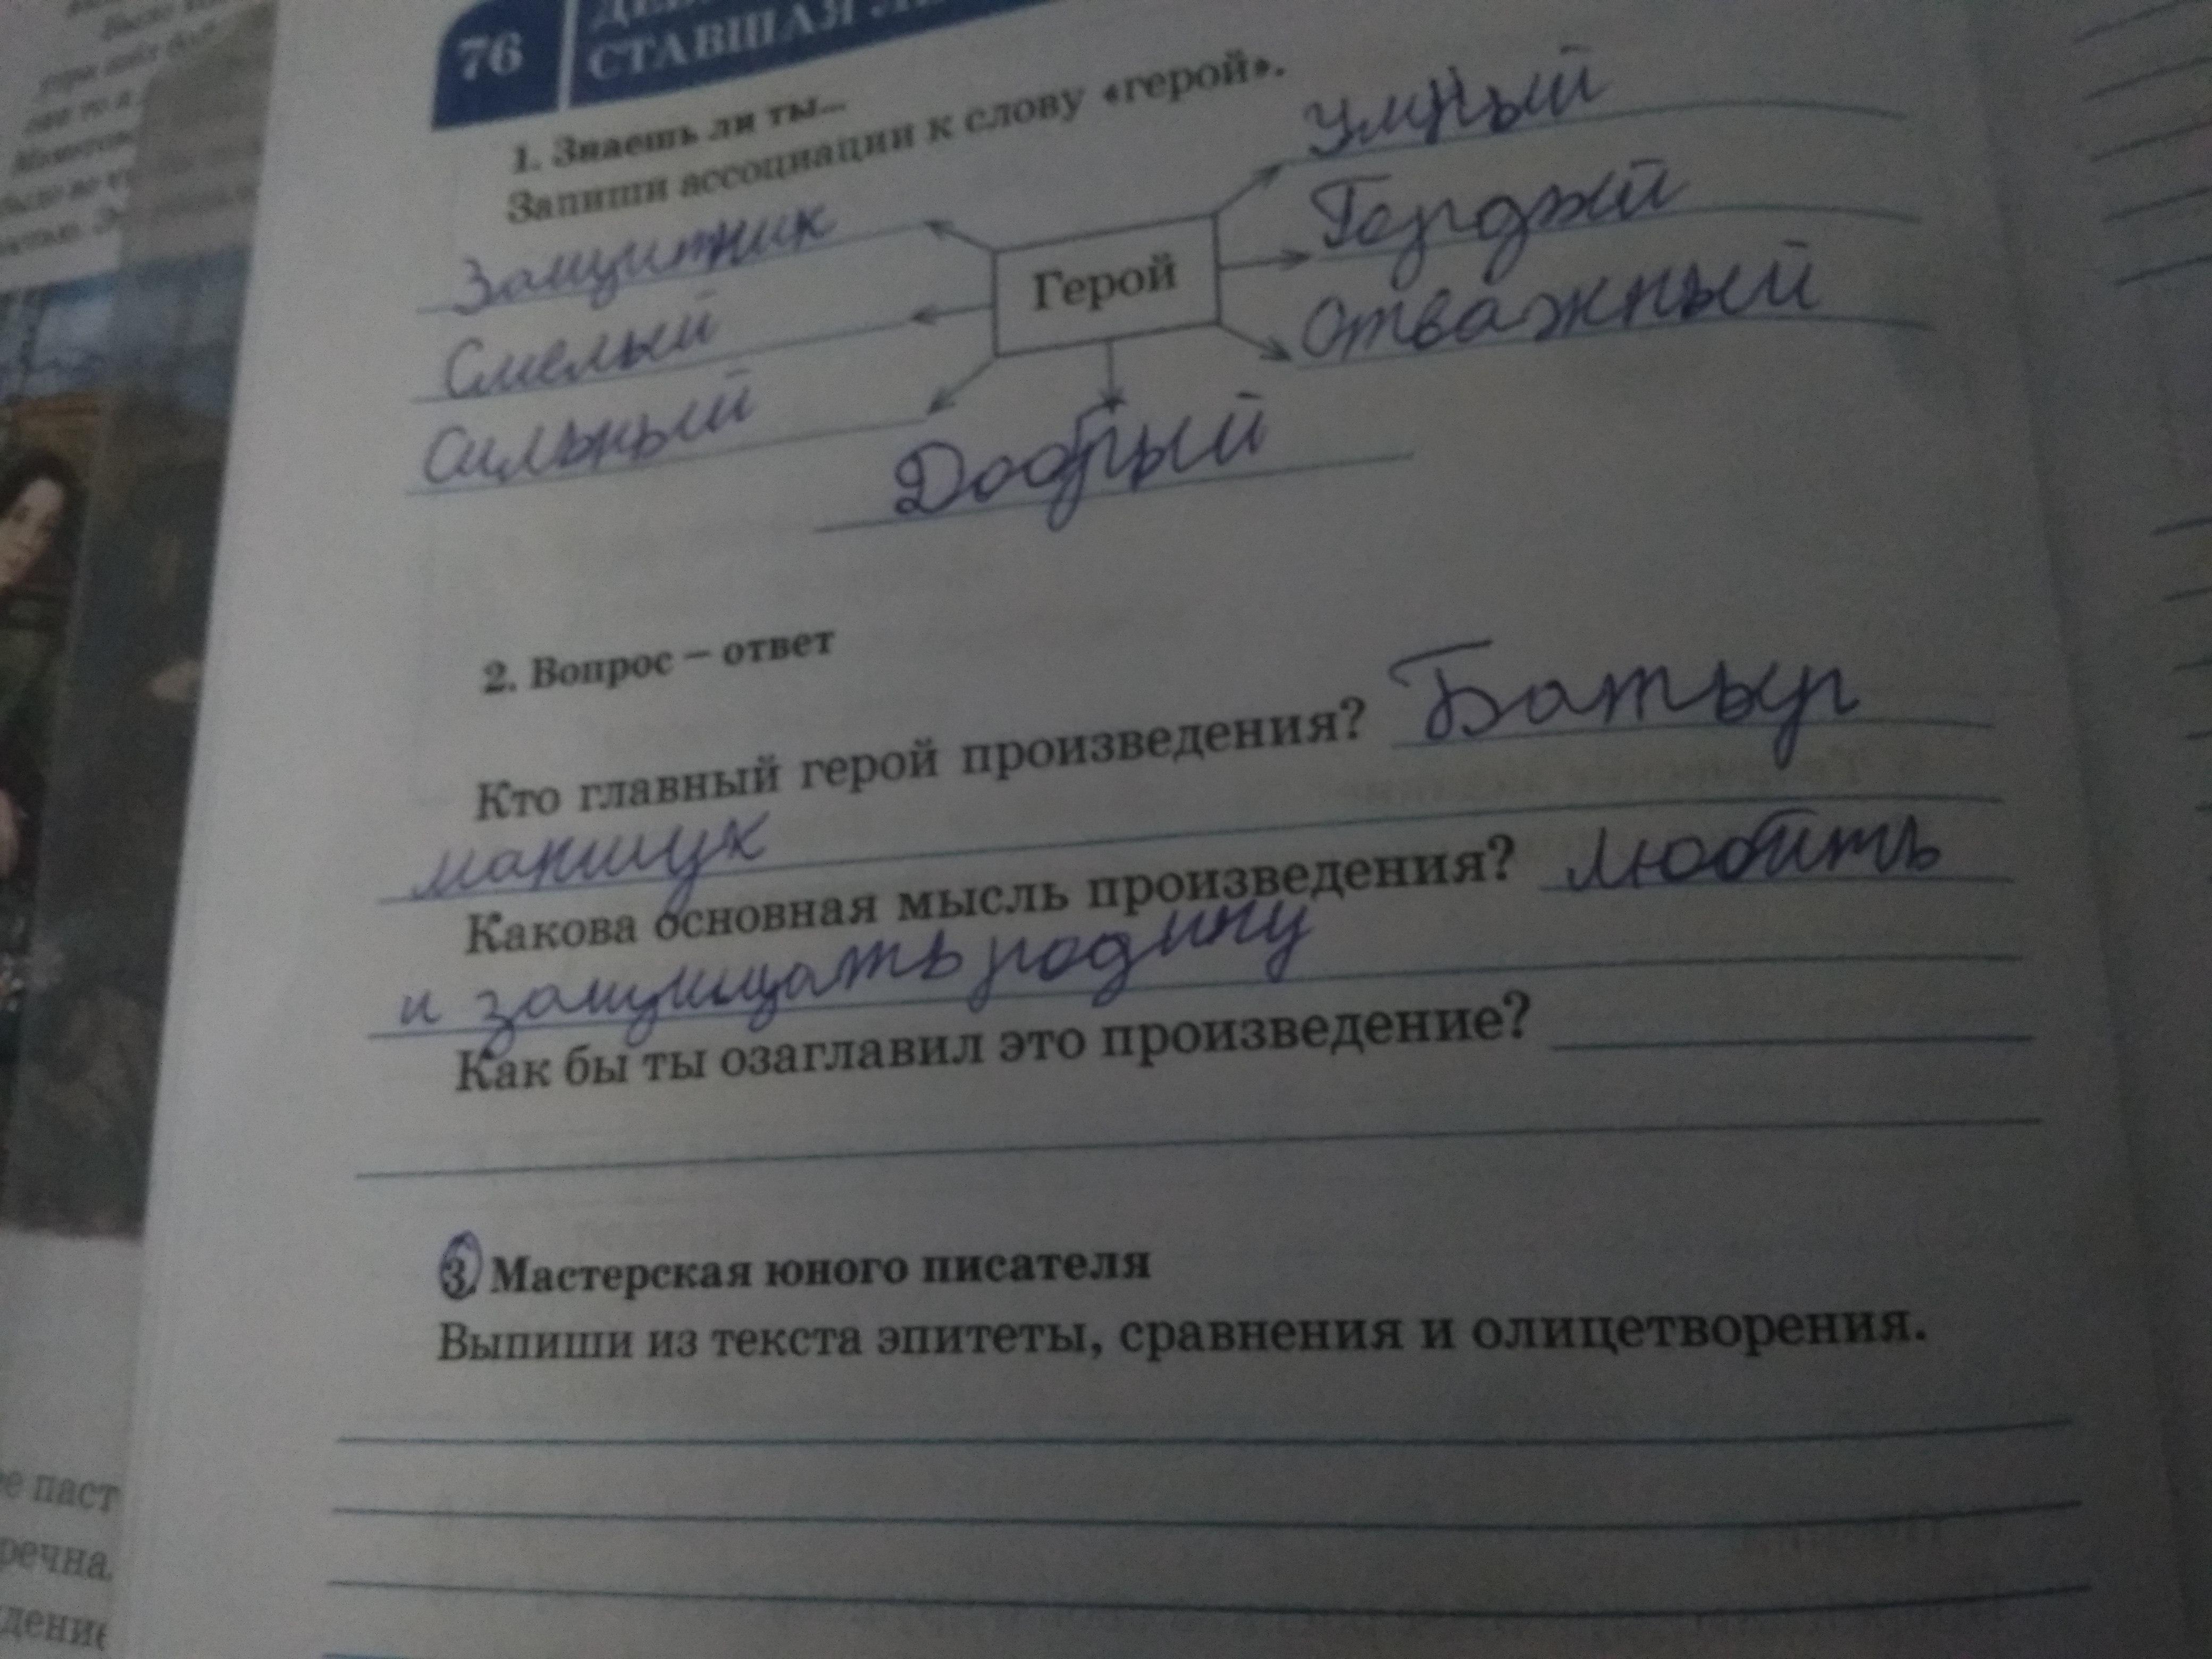 76
СТАВШАЯ
1. Знаешь ли ты...
Запиши ассоциации к слову «герой».
Защитник
Смелый
Сильный
Герой
Умный
Отважный
Добрый
2. Вопрос – ответ
Кто главный герой произведения? Батыр
маншук
Какова основная мысль произведения? любить
и защищать родину
Как бы ты озаглавил это произведение?
3. Мастерская юного писателя
Выпиши из текста эпитеты, сравнения и олицетворения.